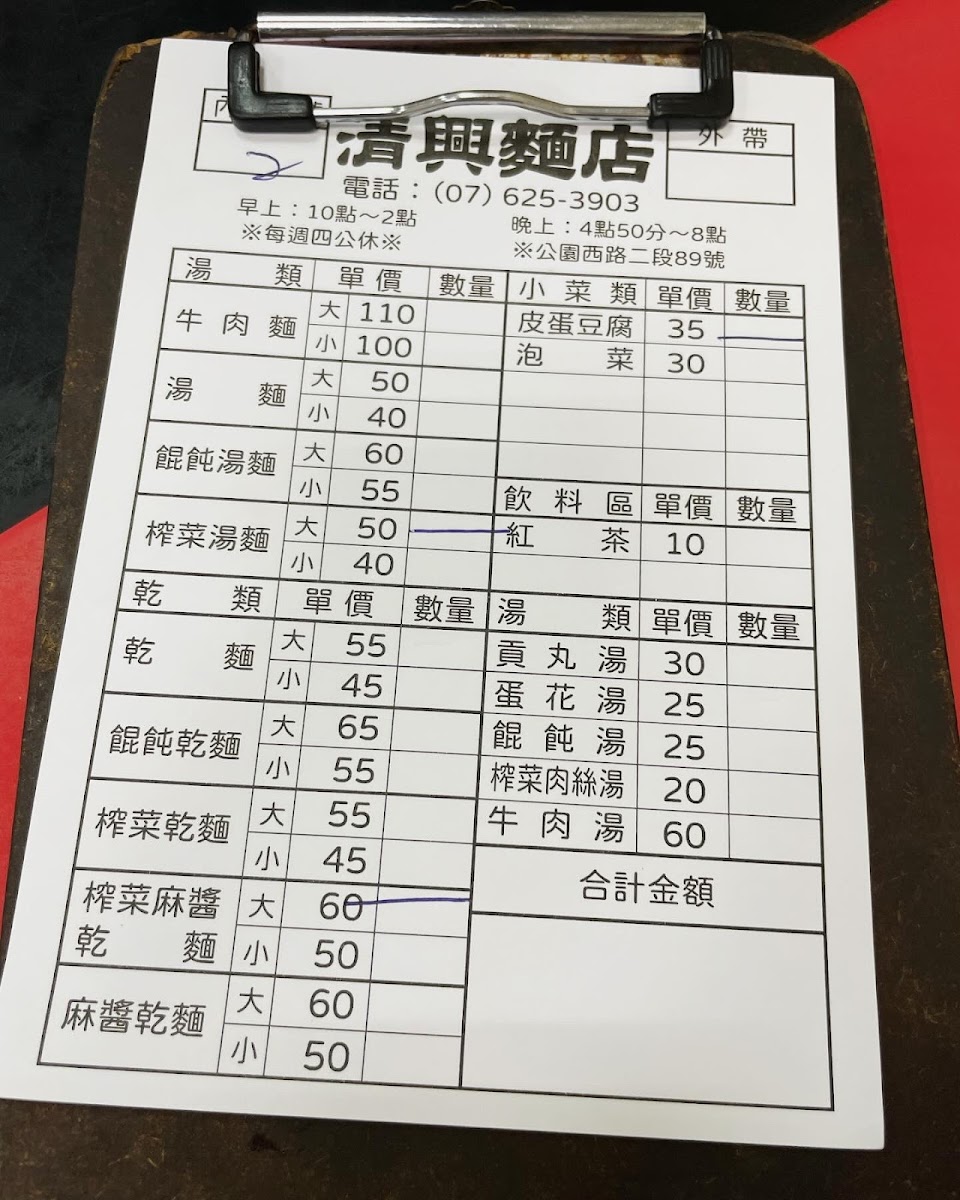 內
2
清興麵店
外帶
電話：(07) 625-3903
早上：10點～2點
晚上：4點50分～8點
※每週四公休※
※公園西路二段89號
湯類 單價 數量
牛肉麵 大 110
小 100
湯麵 大 50
小 40
餛飩湯麵 大 60
小 55
榨菜湯麵 大 50
小 40
乾類 單價 數量
乾麵 大 55
小 45
餛飩乾麵 大 65
小 55
榨菜乾麵 大 55
小 45
榨菜麻醬
乾麵
大 60
小 50
麻醬乾麵 大 60
小 50
小菜類 單價 數量
皮蛋豆腐 35
泡菜 30
飲料區 單價 數量
紅茶 10
湯類 單價 數量
貢丸湯 30
蛋花湯 25
餛飩湯 25
榨菜肉絲湯 20
牛肉湯 60
合計金額